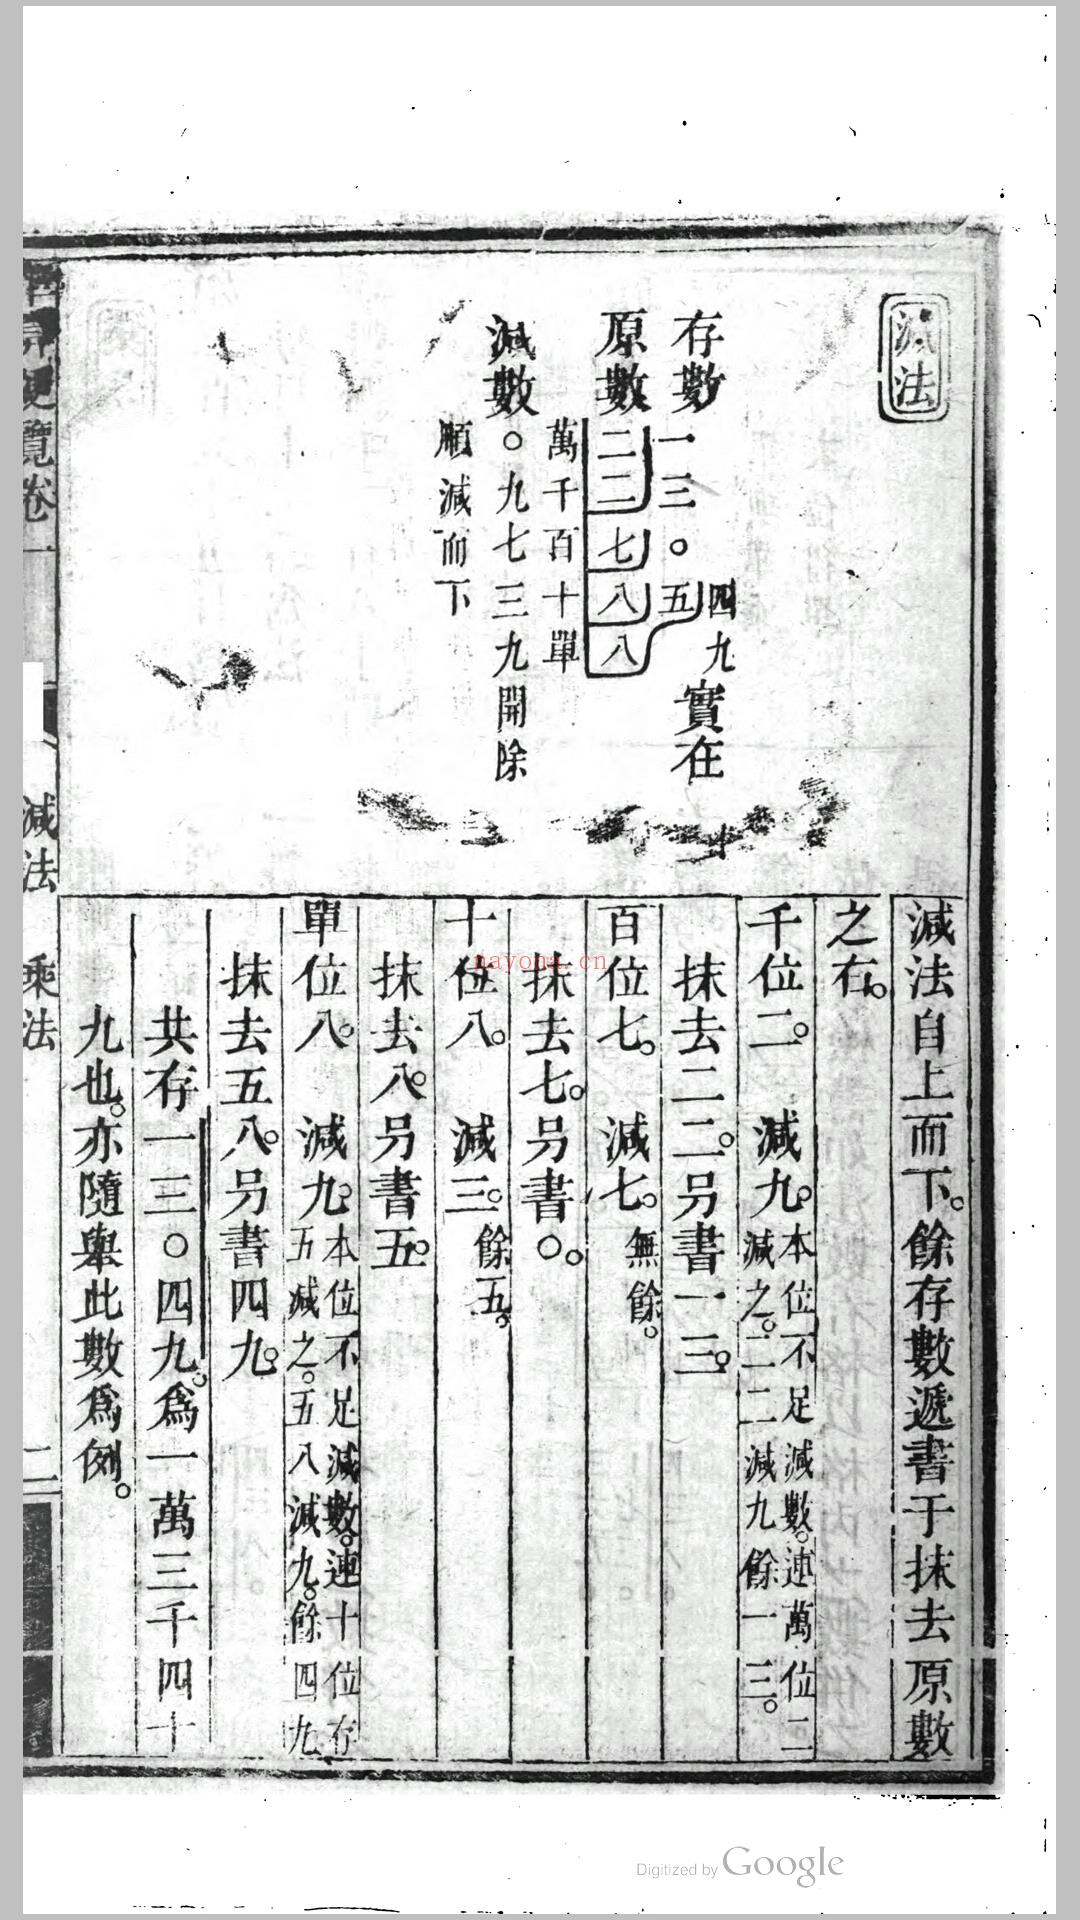 減法
存數一三〇五
四九實在
原數二二七八八
萬千百十單
減數〇九七三九開除
順減而下
減法自上而下。餘存數遞書于抹去原數
之右。
千位二。減九。本位不足減數。連萬位二
減之。二二減九餘一三。
抹去二二。另書一三。
百位七。減七。無餘。
抹去七。另書〇。
十位八。減三。餘五。
抹去八。另書五。
單位八。減九。本位不足減數。連十位存
五減之。五八減九。餘四九
抹去五八。另書四九。
共存一三〇四九。為一萬三千四十
九也。亦隨舉此數為例。
算便覽卷一
減法 乘法
二
nayona.cn
Digitized by Google